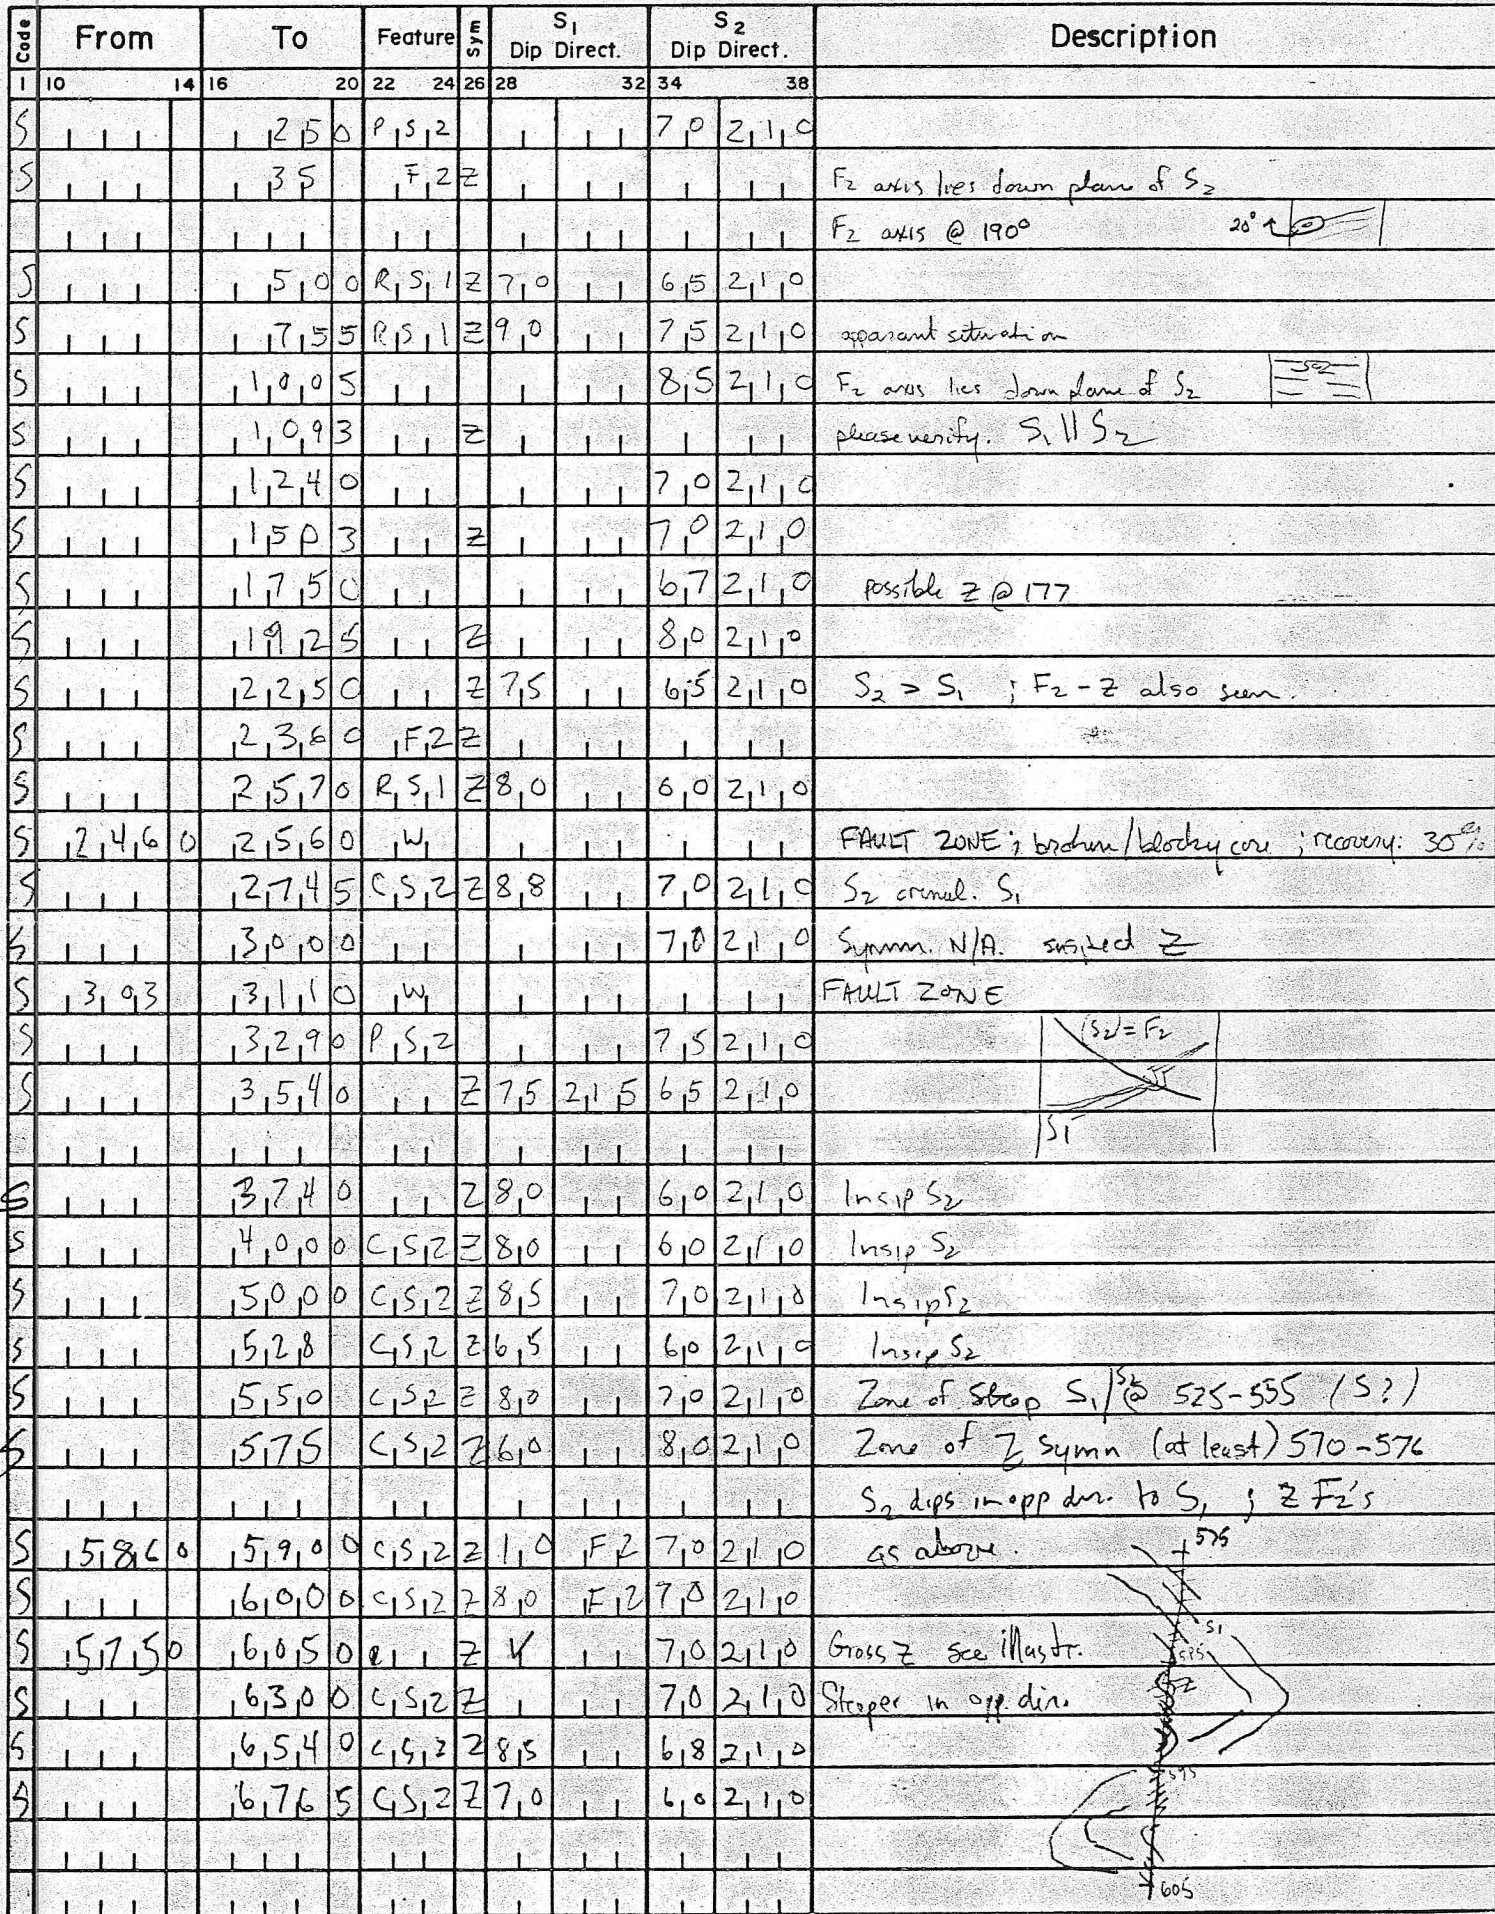 Code From To Feature Sym S1 Dip Direct. S2 Dip Direct. Description
1 10 14 16 20 22 24 26 28 32 34 38
S 250 PS2 70 210
S 35 F2 Z F2 axis lies down plane of S2
F2 axis @ 190° 20°
S 500 RS1 Z 70 65 210
S 755 RS1 Z 90 75 210 apparant situation
S 1005 85 210 F2 axis lies down plane of S2
S 1093 Z please verify. S1 || S2
S 1240 70 210
S 1503 Z 70 210
S 1750 67 210 possible Z @ 177
S 1925 Z 80 210
S 2250 Z 75 65 210 S2 > S1 ; F2 - Z also seen.
S 2360 F2 Z
S 2570 RS1 Z 80 60 210
S 2460 2560 W FAULT ZONE ; broken/blocky core ; recovery: 30%
S 2745 CS2 Z 88 70 210 S2 crenul. S1
S 3000 70 210 Symm. N/A. suspect Z
S 3093 3110 W FAULT ZONE
S 3290 PS2 75 210 (S2) = F2
S 3540 Z 75 215 65 210
S1
S 3740 Z 80 60 210 Insip S2
S 4000 CS2 Z 80 60 210 Insip S2
S 5000 CS2 Z 85 70 210 Insip S2
S 528 CS2 Z 65 60 210 Insip S2
S 550 CS2 Z 80 70 210 Zone of Steep S1/S2 @ 525-535 (S?)
S 575 CS2 Z 60 80 210 Zone of Z Symn (at least) 570-576
S2 dips in opp dir. to S1 ; Z F2's
S 5860 5900 CS2 Z 10 F2 70 210 as above. 575
S 6000 CS2 Z 80 F2 70 210
S 5750 6050 Z 70 210 Gross Z see illustr. S1
585
S 6300 CS2 Z 70 210 Steeper in opp. dir. Z
S 6540 CS2 Z 85 68 210
S 6765 CS2 Z 70 60 210 595
605